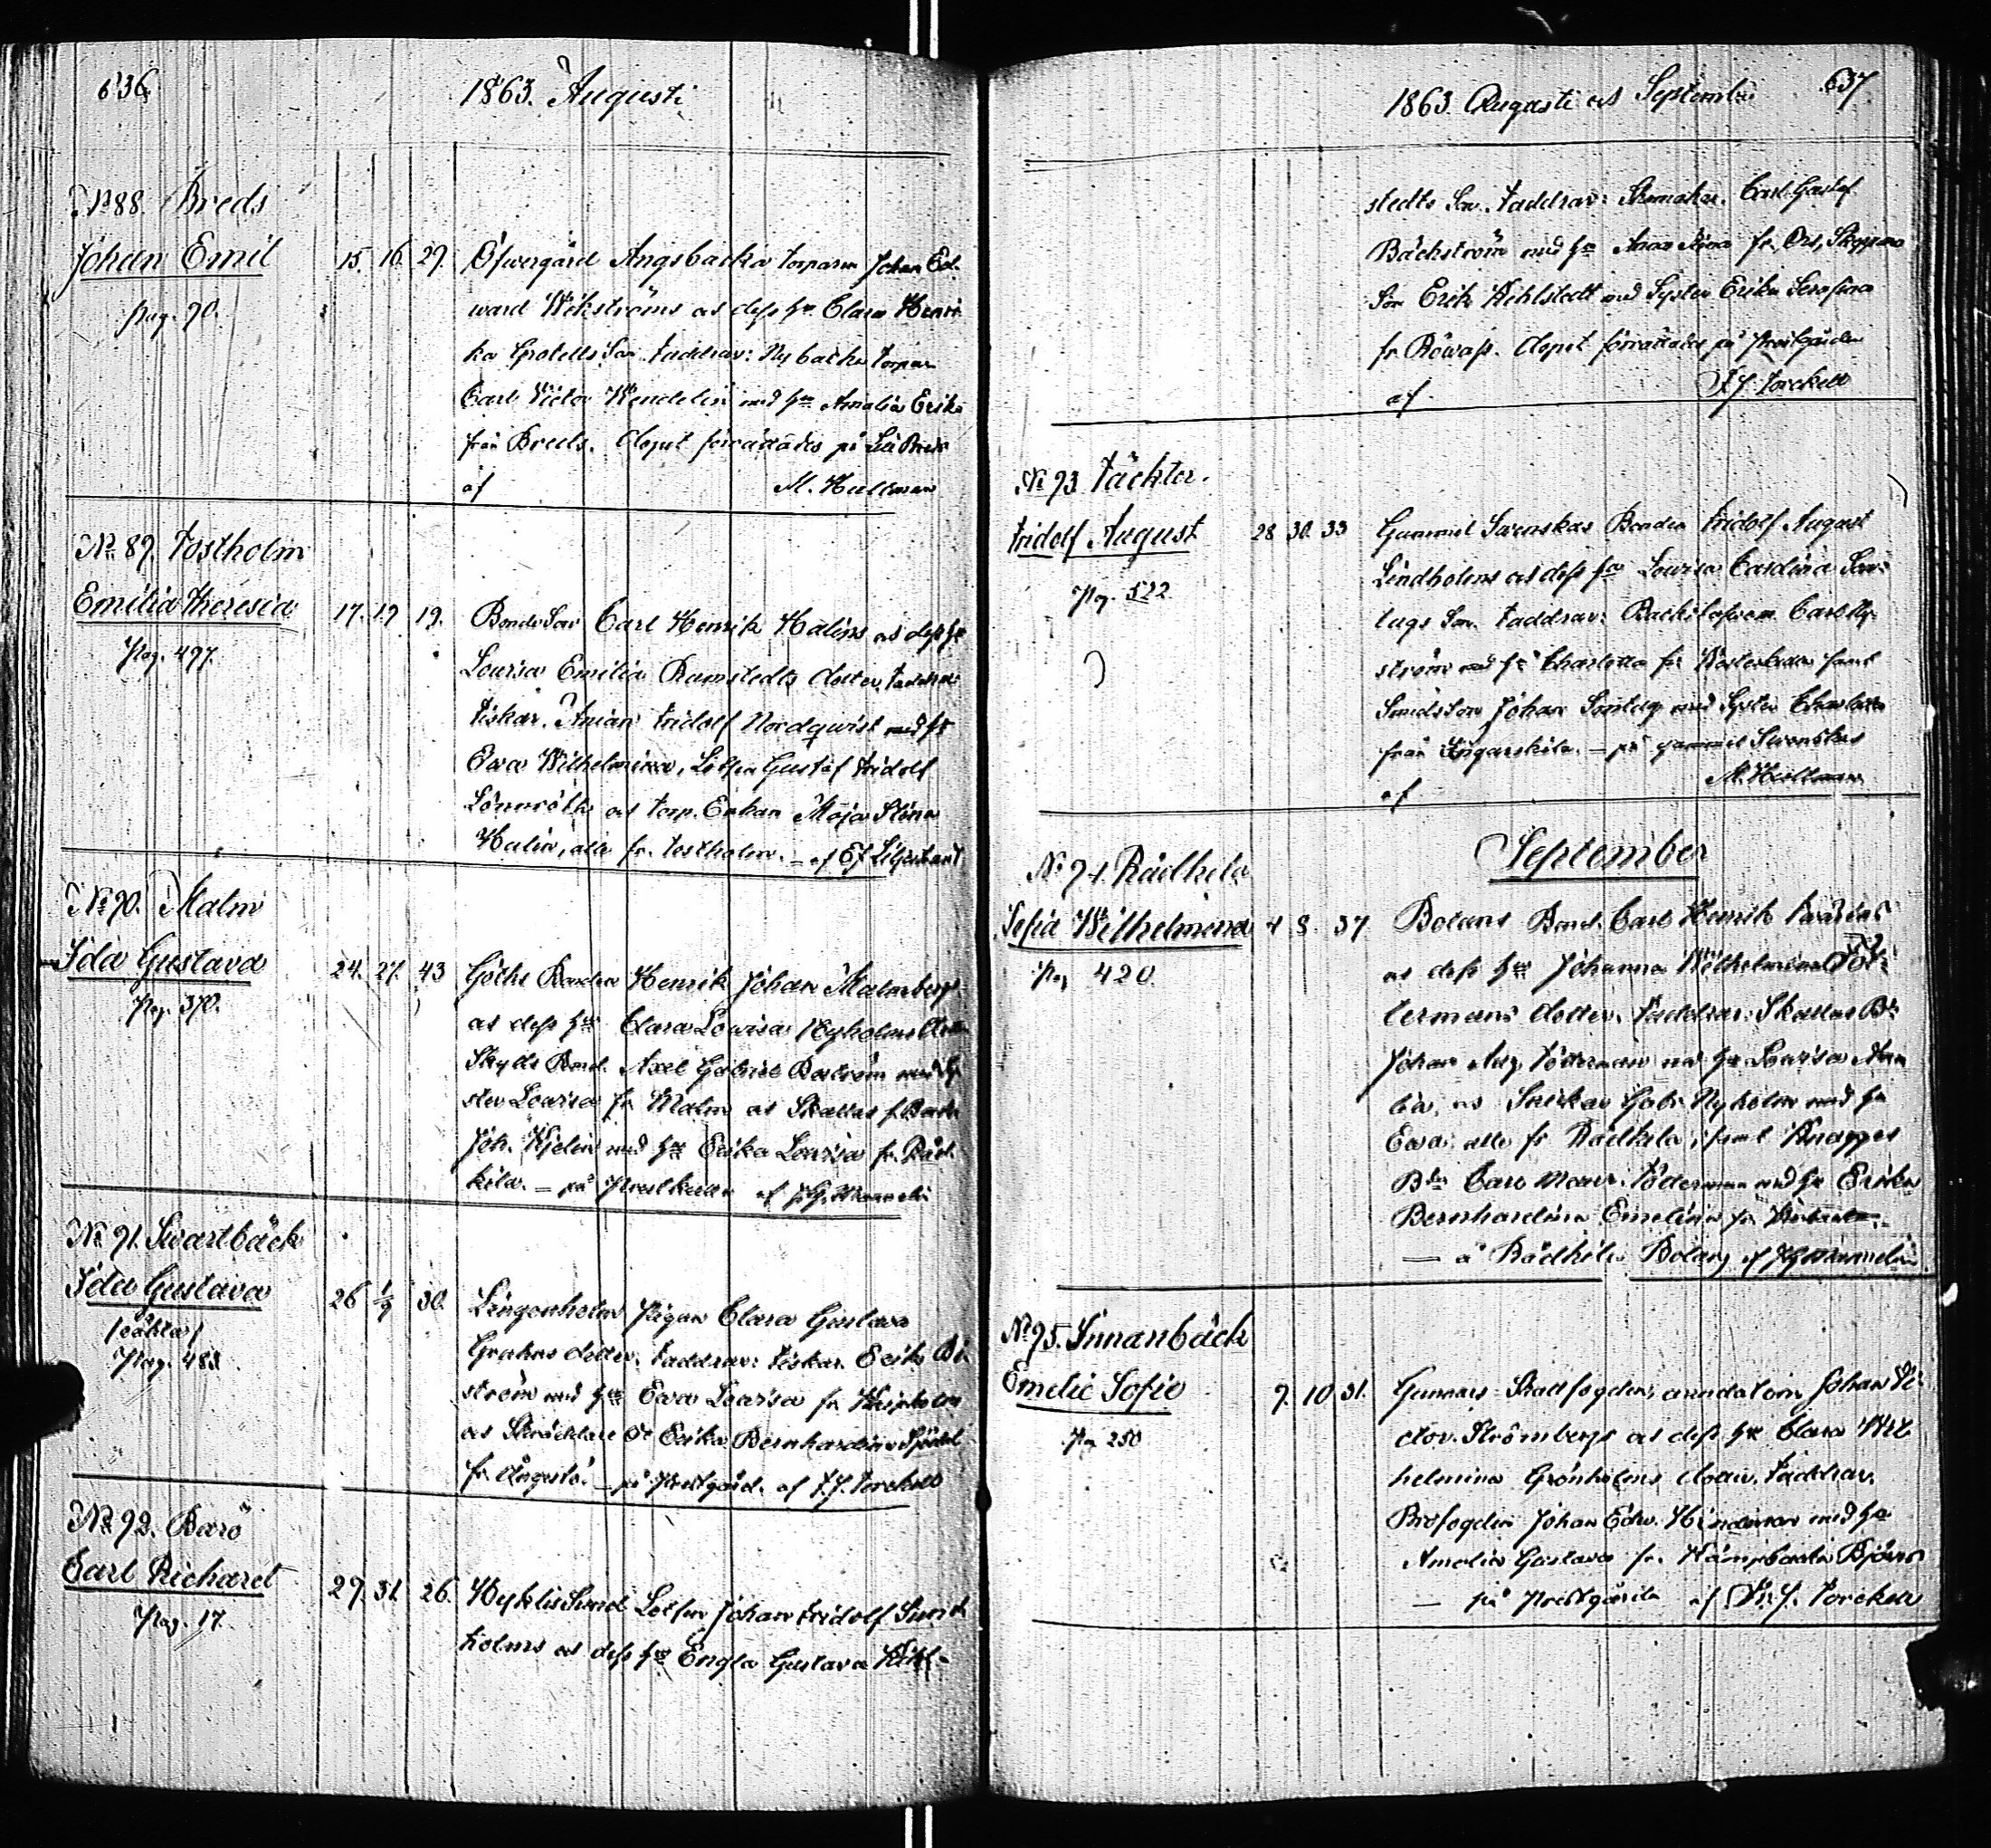 636
1863. Augusti
No 88. Breds
Johan Emil 15. 16. 29. Öfwergård Ängsbacka torparen Johan Ed-
pag. 90. ward Wikströms och dess hu Clara Henri-
ka Grotells Son. Faddrar: Nybacka torpar
Carl Victor Wendelin med hu Amalia Erika
från Breds. Dopet förrättades på Lill Breds
af M. Hullman
No 89. Tostholm
Emilia Theresia 17. 19 19. Bonde Son Carl Henrik Malins och dess hu
Pag. 497. Lovisa Emilia Ramstedts dotter. Faddrar:
Fiskar. Anian Fridolf Nordqwist med hu
Ewa Wilhelmina, Lotsen Gustaf Fridolf
Lönnroth och torp. Enkan Maja Stina
Malin, alla fr. Tostholm. — af
No 90. Malm
Ida Gustava 24. 27. 43 Göths Bonden Henrik Johan Malmbergs
Pag. 370. och dess hu Clara Lovisa Nyholms
Skytts Bond. Axel Gabriel Boström med Sy-
ster Lovisa fr Malm och Skattas f. Bond.
Joh. Hjelin med hu Erika Lovisa fr. Råd-
kila. — på af
No 91. Swartbäck
Ida Gustava 26 1/9 30. Lingonholm Pigan Clara Gustava
/oäkta/ Grahns dotter. Faddrar: Fiskar. Erik Bi-
Pag. 483. ström med hu Ewa Lovisa fr
och Skräddare Dr Erika Bernhardina
fr. — på Prestgård. af F. J. Torckell
No 92. Barö
Carl Richard 29. 31. 26. Lotsen Johan Fridolf Sund-
Pag. 17. holms och dess hu Engla Gustava Kihl-
1863 Augusti och September 637
stedts Son. Faddrar: Skomakar. Carl Gustaf
Bäckström med hu Anna Stina fr. Ors, Skeppare
Son Erik Kihlstedt med Syster Erika Serafina
fr. Röwass. Dopet förrättades på Prestgården
af F. J. Torckell
No 93 Täckter.
Fridolf August 28 30. 33 Gammel Swenskas Bonden Fridolf August
Pag. 522 Lindholms och dess hu Lovisa Carolina Son-
tags Son. Faddrar: Carl Ny-
ström med hu Charlotta fr samt
Smidsson Johan Sontag med Syster Charlotta
från Ingarskila. — på gammel Swenskas
af M. Hullman
September
No 94. Rådkila
Sofia Wilhelmina 4 8. 37 Bolars Bond. Carl Henrik
Pag 420. och dess hu Johanna Wilhelmina Töt-
termans dotter. Faddrar: Skattas Bd
Johan Aug. Tötterman med hu Lovisa Ama-
lia, och Snickar Gabr. Nyholm med hu
Ewa, alla fr Rådkila, samt Knapper
Bdn Carl Tötterman med hu Erika
Bernhardina Emelina fr
— å Rådkila Bolars af
No 95. Innanbäck
Emelie Sofie 7. 10 31. Gumnäs Stallfogden, arrendatorn Johan Vi-
Pag 250 ctor Strömbergs och dess hu Clara Wil-
helmina Grönholms dotter. Faddrar.
Brofogden Johan Edw. Hindman med hu
Amalia Gustava fr. Kämpbacka Björns
— på Prestgården af F. J. Torckell